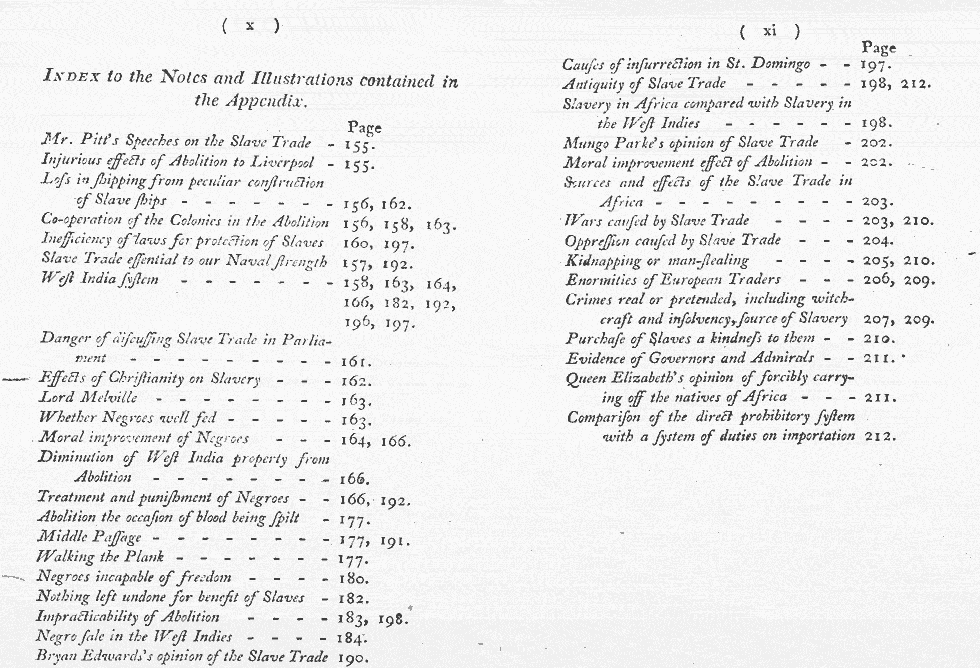 ( x )
INDEX to the Notes and Illustrations contained in
the Appendix.
Page
Mr. Pitt's Speeches on the Slave Trade - 155.
Injurious effects of Abolition to Liverpool - 155.
Loſs in ſhipping from peculiar conſtruction
of Slave ſhips - - - - - - - 156, 162.
Co-operation of the Colonies in the Abolition 156, 158, 163.
Inefficiency of laws for protection of Slaves 160, 197.
Slave Trade eſſential to our Naval ſtrength 157, 192.
Weſt India ſyſtem - - - - - - - 158, 163, 164,
166, 182, 192,
196, 197.
Danger of diſcuſſing Slave Trade in Parlia-
ment - - - - - - - - - 161.
Effects of Chriſtianity on Slavery - - - 162.
Lord Melville - - - - - - - - 163.
Whether Negroes well fed - - - - - 163.
Moral improvement of Negroes - - - 164, 166.
Diminution of Weſt India property from
Abolition - - - - - - - - 166.
Treatment and puniſhment of Negroes - - 166, 192.
Abolition the occaſion of blood being ſpilt - 177.
Middle Paſſage - - - - - - - - 177, 191.
Walking the Plank - - - - - - - 177.
Negroes incapable of freedom - - - - 180.
Nothing left undone for benefit of Slaves - 182.
Impracticability of Abolition - - - - 183, 198.
Negro ſale in the Weſt Indies - - - - 184.
Bryan Edwards's opinion of the Slave Trade 190.
( xi )
Page
Cauſes of inſurrection in St. Domingo - - 197.
Antiquity of Slave Trade - - - - - 198, 212.
Slavery in Africa compared with Slavery in
the Weſt Indies - - - - - - 198.
Mungo Parke's opinion of Slave Trade - 202.
Moral improvement effect of Abolition - - 202.
Sources and effects of the Slave Trade in
Africa - - - - - - - - - 203.
Wars cauſed by Slave Trade - - - - 203, 210.
Oppreſſion cauſed by Slave Trade - - - 204.
Kidnapping or man-ſtealing - - - - 205, 210.
Enormities of European Traders - - - 206, 209.
Crimes real or pretended, including witch-
craft and inſolvency, ſource of Slavery 207, 209.
Purchaſe of Slaves a kindneſs to them - - 210.
Evidence of Governors and Admirals - - 211.
Queen Elizabeth's opinion of forcibly carry-
ing off the natives of Africa - - - 211.
Compariſon of the direct prohibitory ſyſtem
with a ſyſtem of duties on importation 212.